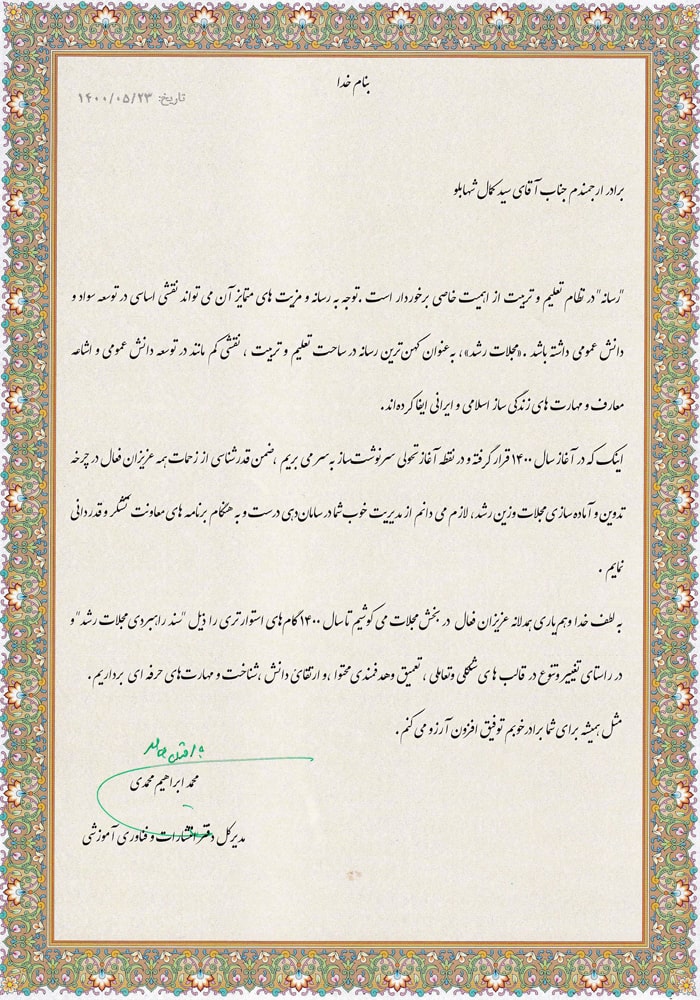 بنام خدا
تاریخ: ۱۴۰۰/۰۵/۲۳
برادر ارجمندم جناب آقای سید کمال شهابلو
"رسانه" در نظام تعلیم و تربیت از اهمیت خاصی برخوردار است . توجه به رسانه و مزیت های متمایز آن می تواند نقشی اساسی در توسعه سواد و
دانش عمومی داشته باشد . «مجلات رشد»، به عنوان کهن ترین رسانه در ساحت تعلیم و تربیت ، نقشی کم مانند در توسعه دانش عمومی و اشاعه
معارف و مهارت های زندگی ساز اسلامی و ایرانی ایفا کرده اند.
اینک که در آغاز سال ۱۴۰۰ قرار گرفته و در نقطه آغاز تحولی سرنوشت ساز به سر می بریم ، ضمن قدرشناسی از زحمات همه عزیزان فعال در چرخه
تدوین و آماده سازی مجلات وزین رشد، لازم می دانم از مدیریت خوب شما در سامان دهی درست و به هنگام برنامه های معاونت تشکر و قدردانی
نمایم .
به لطف خدا و هم یاری همدلانه عزیزان فعال در بخش مجلات می کوشیم تا سال ۱۴۰۰ گام های استوارتری را ذیل "سند راهبردی مجلات رشد" و
در راستای تغییر و تنوع در قالب های شکلی و تعاملی ، تعمیق و هدفمندی محتوا ، و ارتقائ دانش ، شناخت و مهارت های حرفه ای برداریم .
مثل همیشه برای شما برادر خوبم توفیق افزون آرزو می کنم .
محمد ابراهیم محمدی
مدیرکل دفتر انتشارات و فناوری آموزشی